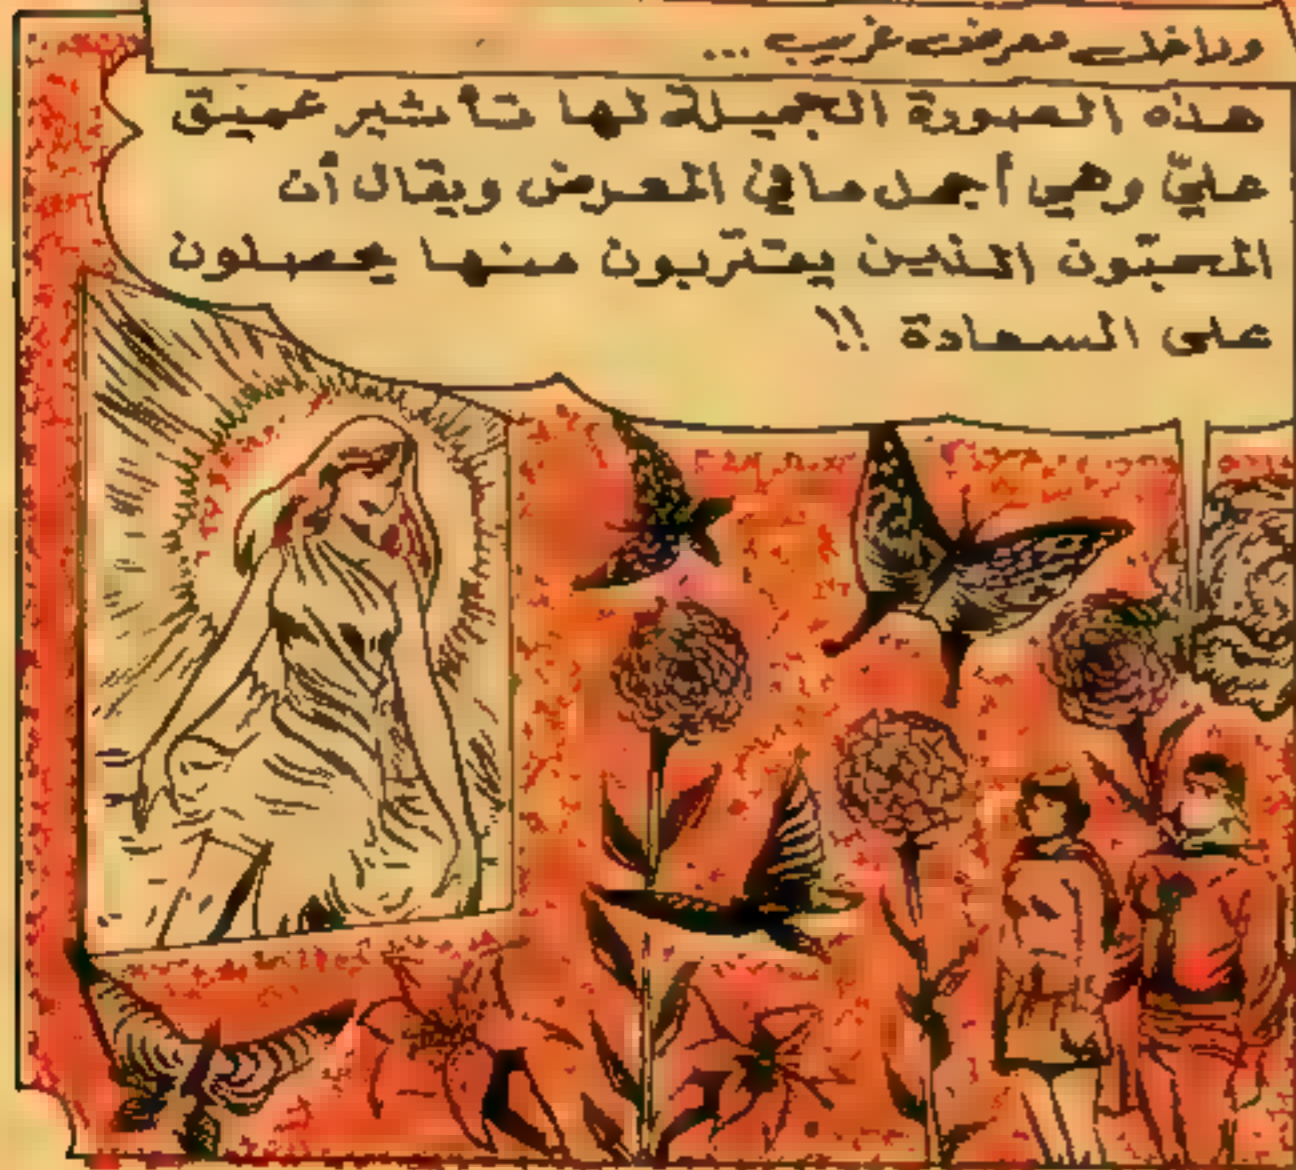 وداخل معرض غريب ...
هذه الصورة الجميلة لها تأثير عميق
عليّ وهي أجمل ما في المعرض ويقال أن
المحبّون الذين يقتربون منها يحصلون
على السعادة !!